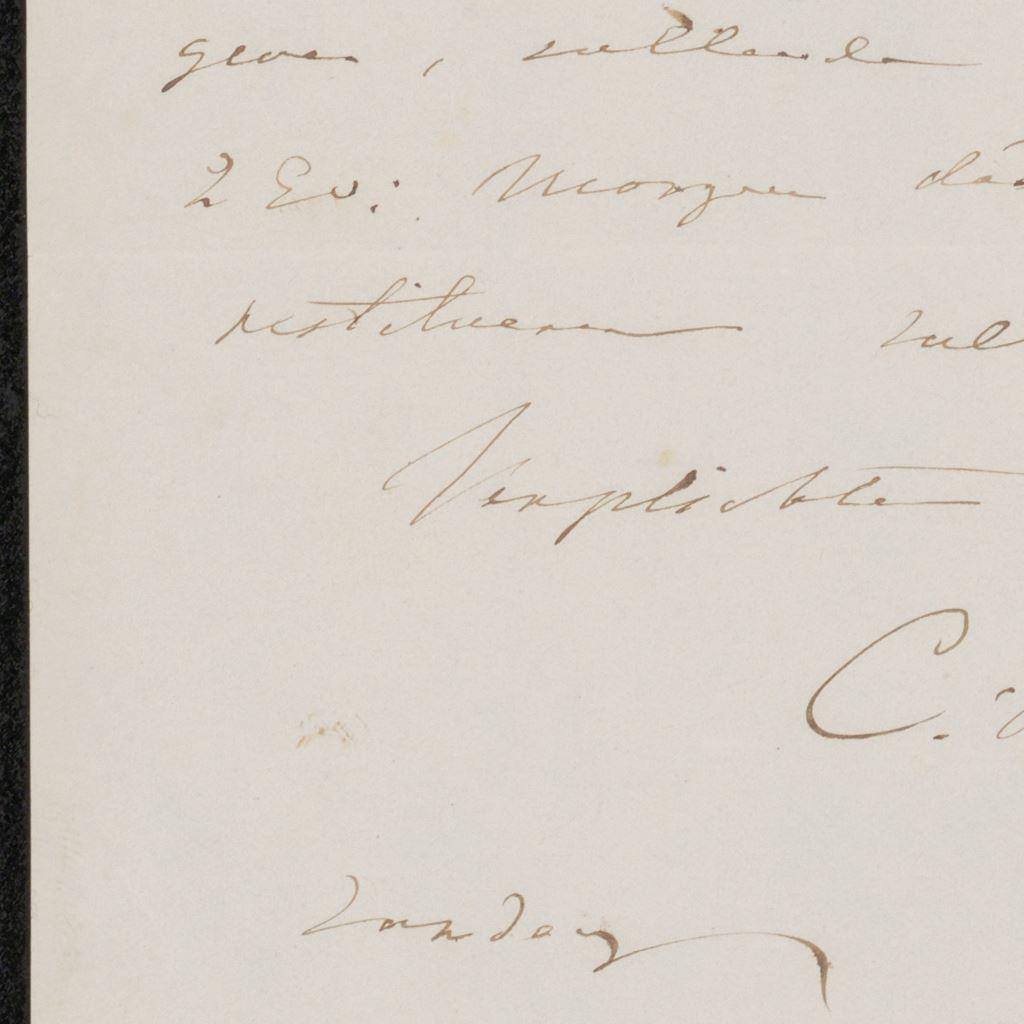 geven, zullende
2 Ev: Morgen
restitueren zal
Verplichte
C.
Zondag